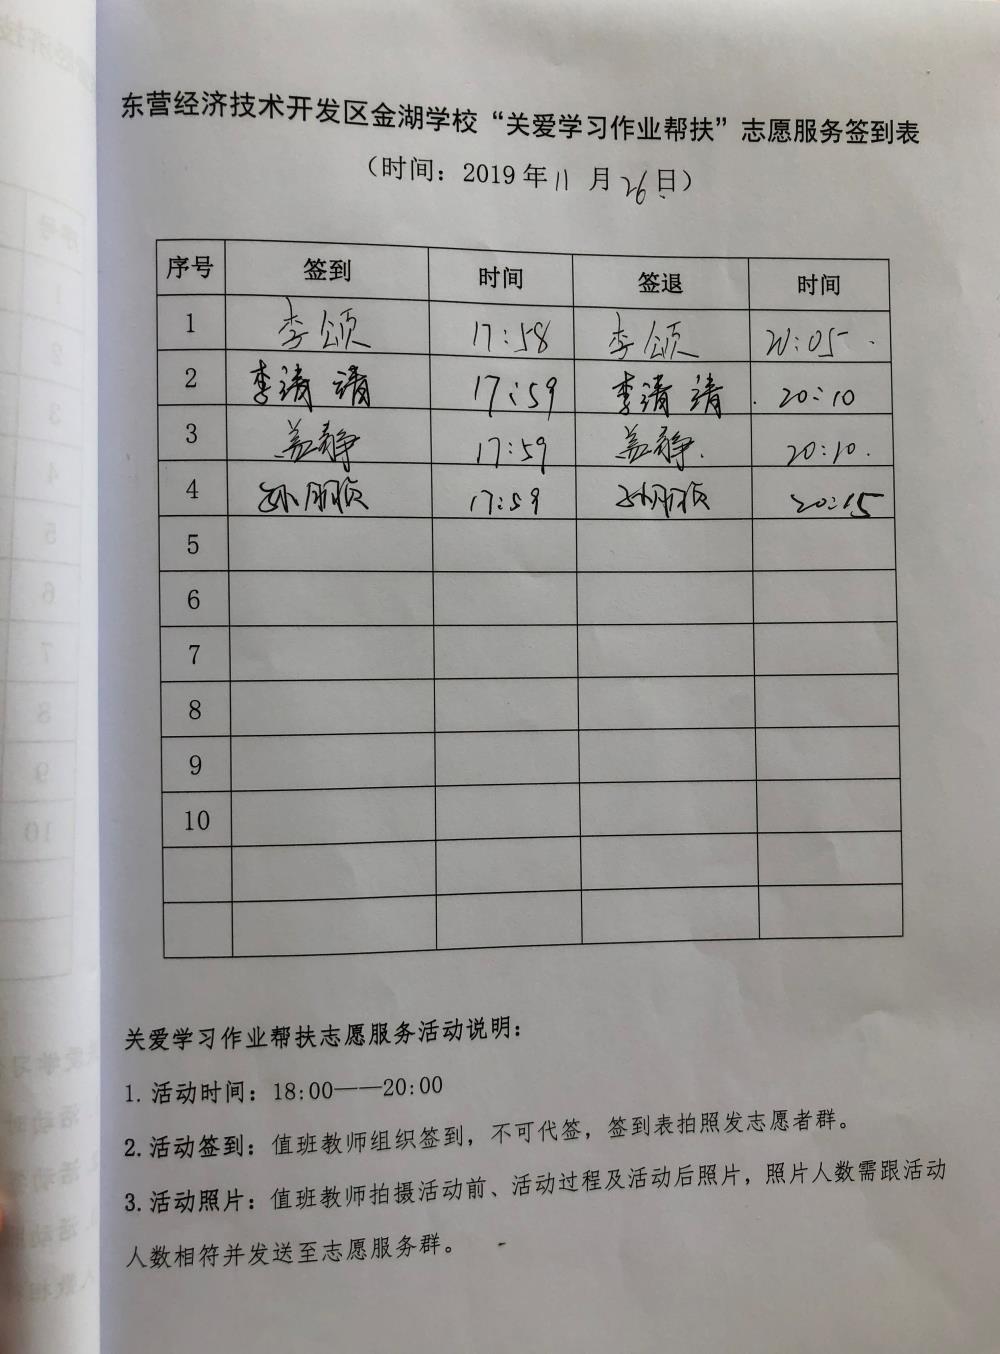 东营经济技术开发区金湖学校“关爱学习作业帮扶”志愿服务签到表
（时间：2019年11月26日）
序号 签到 时间 签退 时间
1 李颂 17:58 李颂 20:05
2 李清清 17:59 李清清 20:10
3 盖静 17:59 盖静 20:10
4 孙丽祯 17:59 孙丽祯 20:15
5
6
7
8
9
10
关爱学习作业帮扶志愿服务活动说明：
1.活动时间：18:00——20:00
2.活动签到：值班教师组织签到，不可代签，签到表拍照发志愿者群。
3.活动照片：值班教师拍摄活动前、活动过程及活动后照片，照片人数需跟活动
人数相符并发送至志愿服务群。